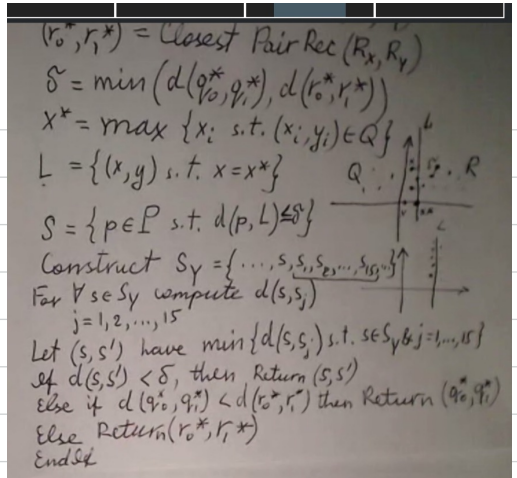 (r₀*, r₁*) = Closest Pair Rec (Rx, Ry)
δ = min (d(q₀*, q₁*), d(r₀*, r₁*))
x* = max {xᵢ s.t. (xᵢ, yᵢ) ∈ Q}
L = {(x, y) s.t. x = x*}
L
Q
R
S = {p ∈ P s.t. d(p, L) ≤ δ}
Construct Sy = {..., s, s₁, s₂, ..., s₁₅, ...}
L
For ∀ s ∈ Sy compute d(s, sⱼ)
j = 1, 2, ..., 15
Let (s, s') have min {d(s, sⱼ) s.t. s ∈ Sy & j = 1, ..., 15}
if d(s, s') < δ, then Return (s, s')
Else if d(q₀*, q₁*) < d(r₀*, r₁*) then Return (q₀*, q₁*)
Else Return (r₀*, r₁*)
EndIf